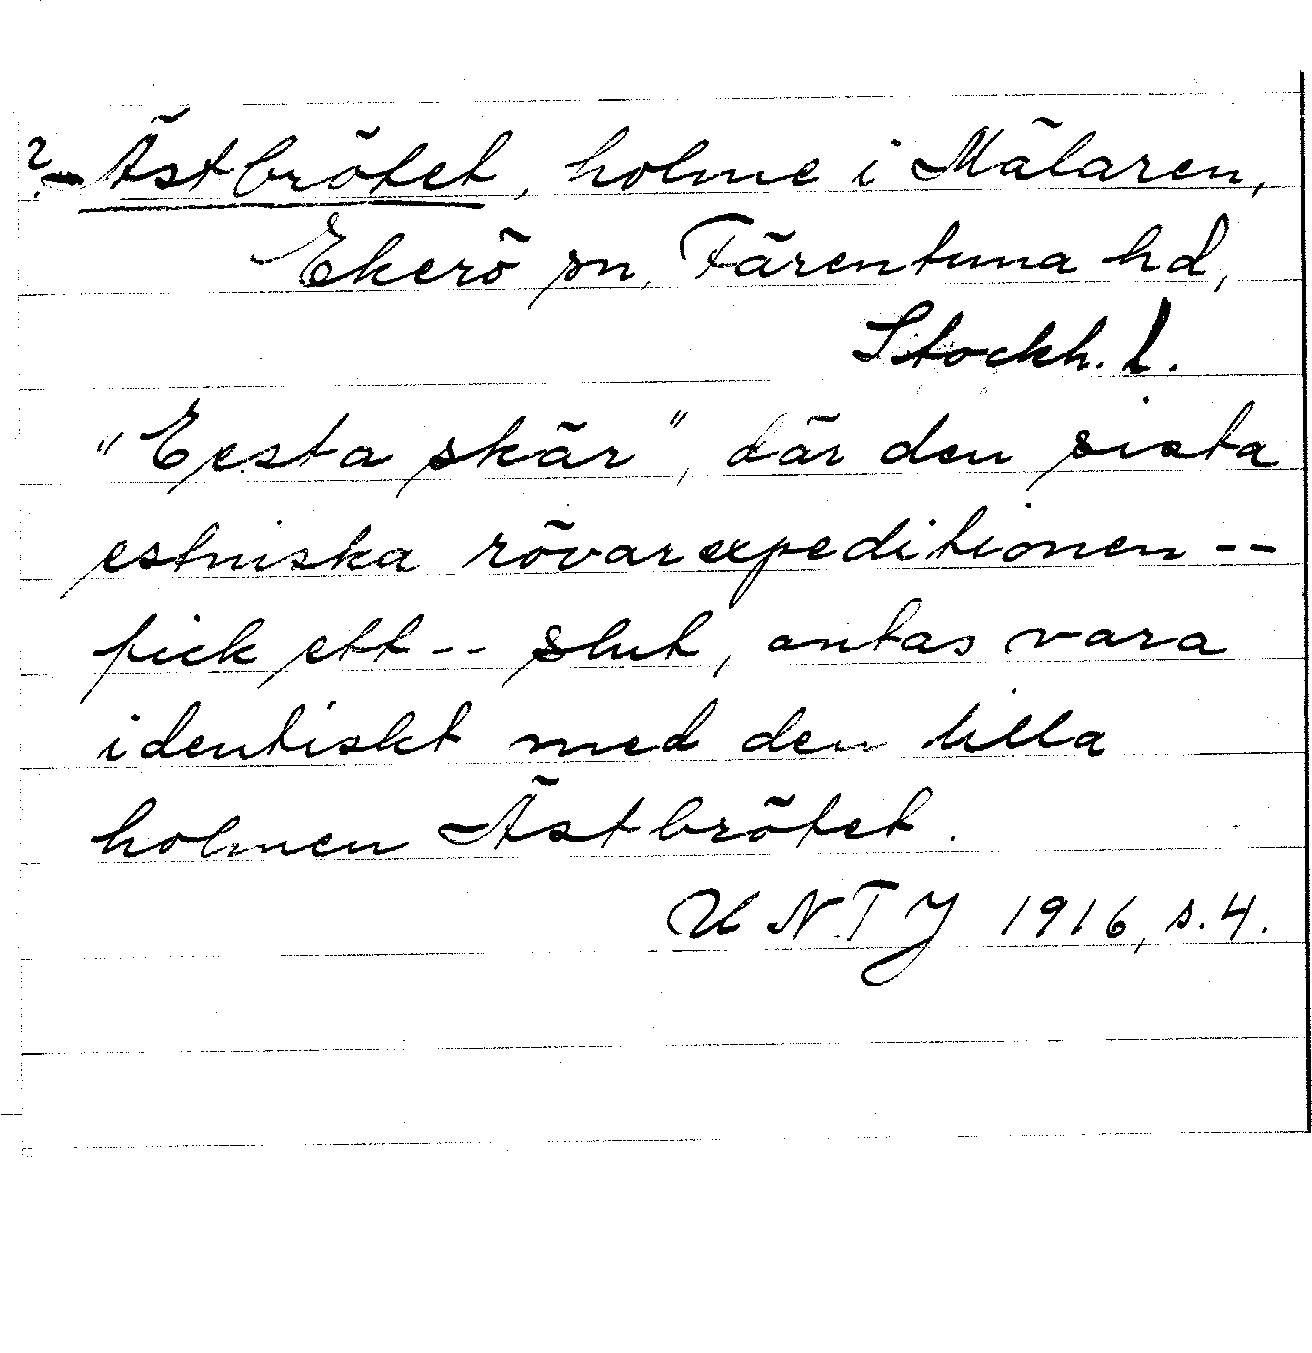 ? Ästbrötet, holme i Mälaren,
Ekerö sn, Färentuna hd,
Stockh. l.
"Eesta skär", där den sista
estniska rövarexpeditionen --
fick ett -- slut, antas vara
identiskt med den lilla
holmen Ästbrötet.
UNTJ 1916, s. 4.